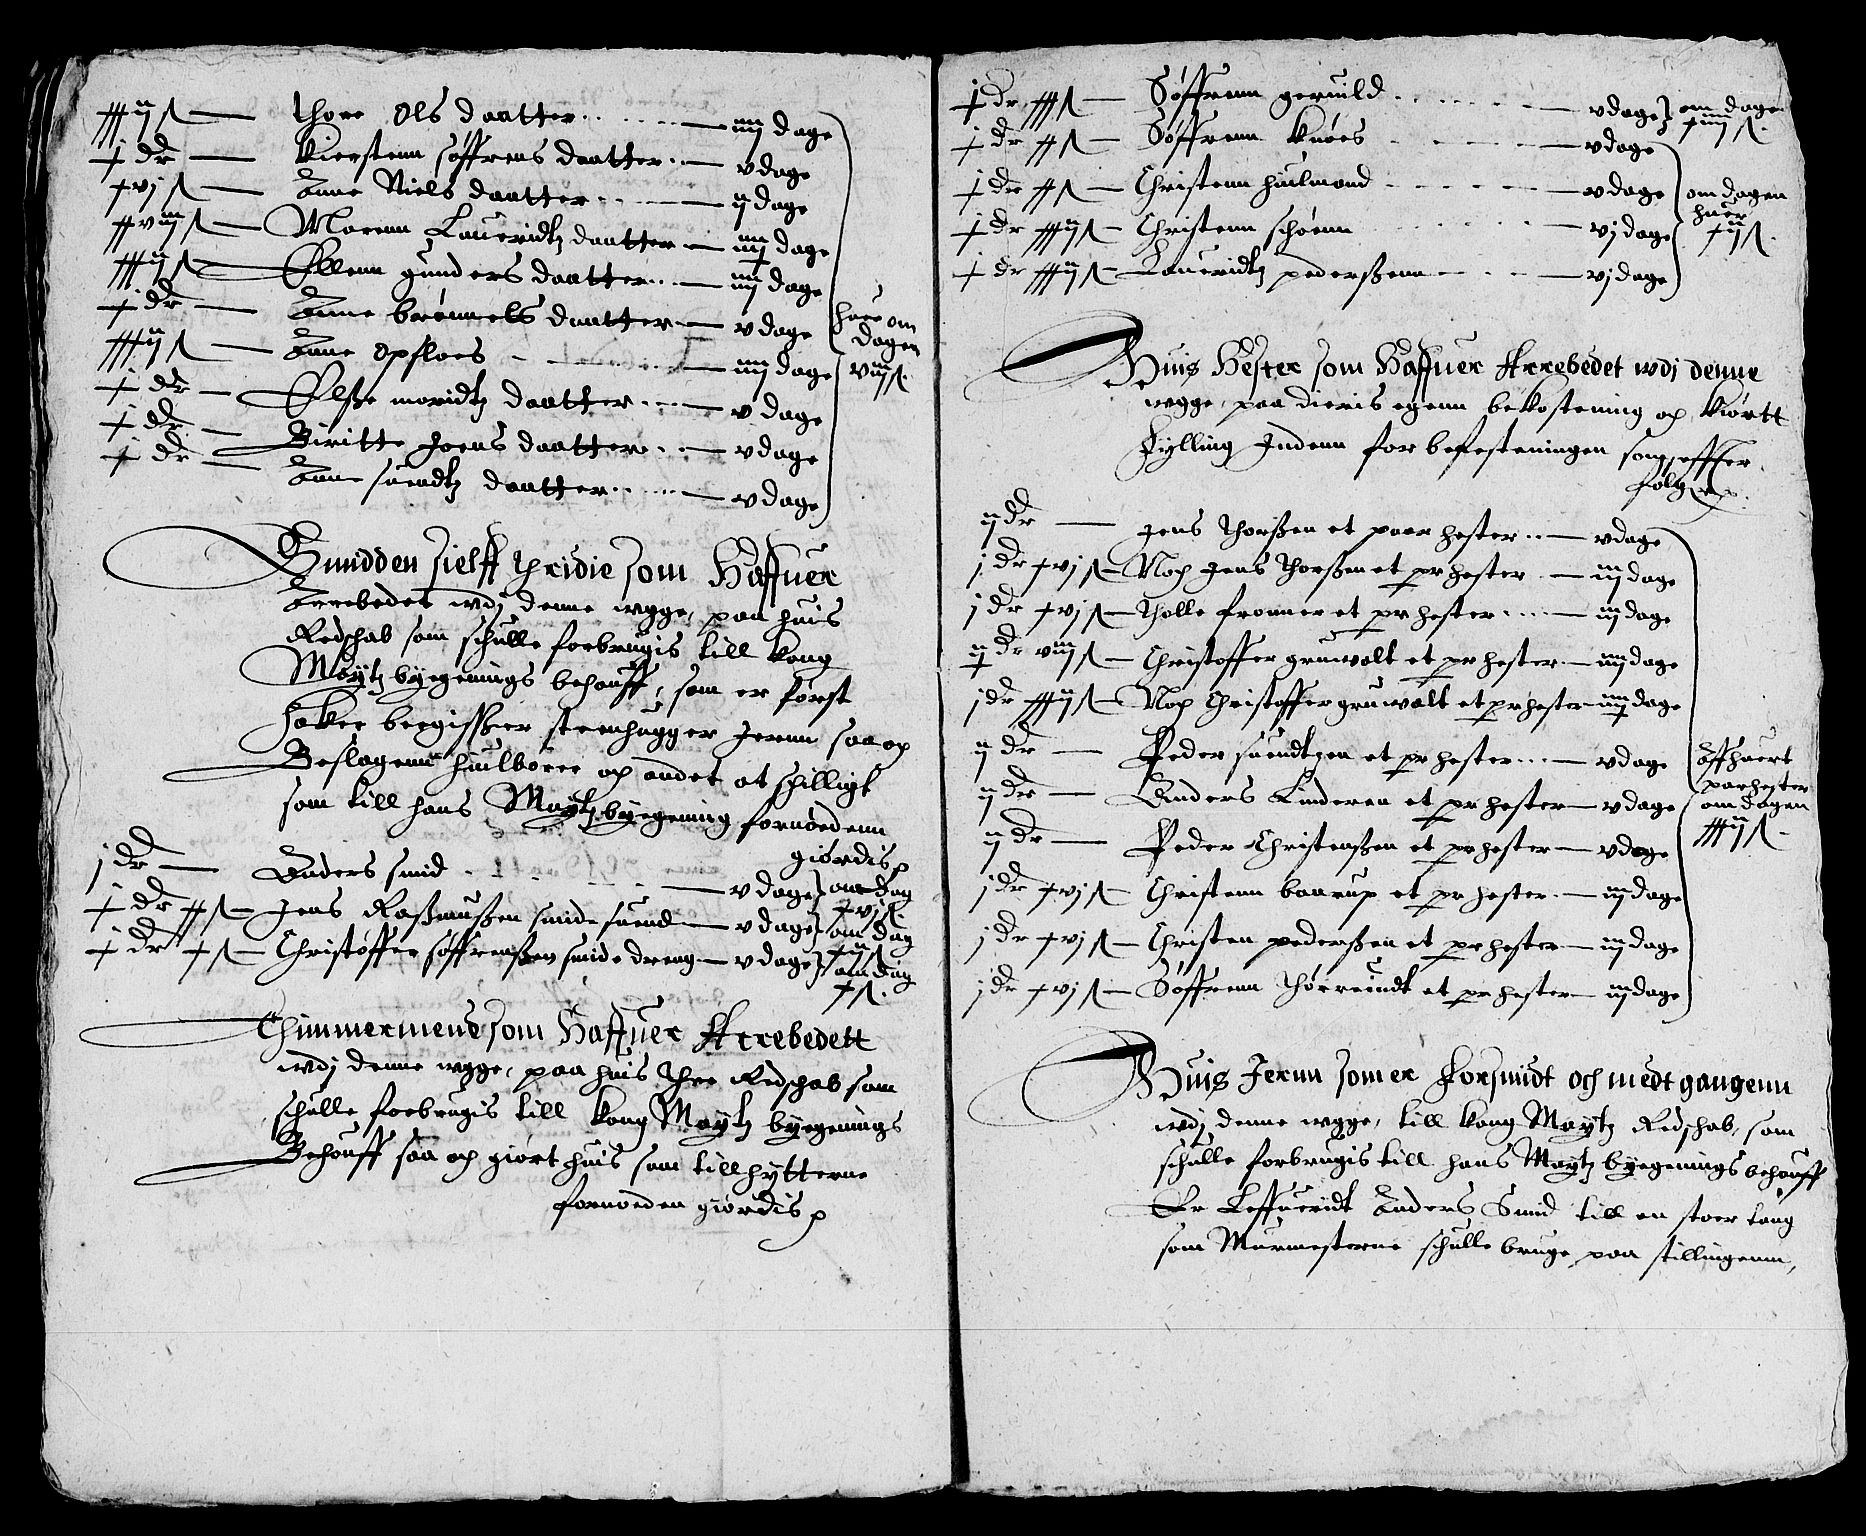 xxxij ß — Thore Ols daatter — iiij dage
½ dr — Kierstenn søffrens daatter — v dage
xvj ß — Anne Niels daatter — ij dage
xxviij ß — Marenn Lauridtz daatter — iij½ dage
xxxij ß — Ellenn gunders daatter — iiij dage
½ dr — Anne brønnels daatter — v dage
xxxij ß — Anne Opfloes — iiij dage
½ dr — Elße moridtz daatter — v dage
½ dr — Biritte Joens daatter — v dage
½ dr — Anne suendtz daatter — v dage
huer om
dagen
viij ß
Smidden sielff thridie som Haffuer
Arrebedet wdj denne wgge, paa huis
Redschab som schulle forbrugis till kong
Maytz byegenings behouff, som er først
haker beegißer steenhugger Jernn saa og
Beslagenn hiulbøree og andet at schilligt
som till hans Maytz byegening fornødenn
giørdis
j dr — Anders smid — v dage om dag xvj ß
½ dr xx ß — Jens Raßmußen smide suend — v dage om dag xij ß
½ dr x ß — Christoffer søffrenßen smide dreng — v dage om dag x ß
Thimmermend som Haffuer Arrebedett
wdj denne wgge, paa huis thre Redschab som
schulle forbrugis till kong Maytz byegenings
Behouff saa och giørt huis som till hytterne
fornøeden giørdis
½ dr xxx ß — Søffrenn geruild — v dage om dage xiiij ß
½ dr xx ß — Søffrenn knøes — v dage
½ dr xx ß — Christenn huilmand — v dage
½ dr xxxij ß — Christenn schøenn — vj dage
½ dr xxxij ß — Lauridtz pederßenn — vj dage
om dagen
huer
xij ß
Huis Hester som Haffuer Arrebedet wdj denne
wgge, paa dieris egenn bekostening og kiørtt
Fylling Indenn for befesteningen som effter
følger
ij dr — Jens Thorßen et paar hester — v dage
j dr xvj ß — Noch Jens Thorßen et par hester — iij dage
j dr xvj ß — Tholle fronner et par hester — iij dage
i½ dr viij ß — Christoffer gruwalt et par hester — iiij dage
j dr xxxij ß — Noch Christoffer gruwalt et par hester — iij½ dage
ij dr — Peder suendtzen et par hester — v dage
ij dr — Anders Linderen et par hester — v dage
ij dr — Peder Christenßen et par hester — v dage
j dr xvj ß — Christenn baarup et par hester — iij dage
j dr xvj ß — Christen pederßen et par hester — iij dage
j dr xvj ß — Søffrenn Thørreindt et par hester — iij dage
Aff huert
par hester
om dagen
xxxij ß
Huis Jernn som er Forsmidt och medt gangenn
wdj denne wgge, till kong Maytz Redschab, som
schulle forbrugis till hans Maytz byegenings behouff
Er Leffueridt Anders Smid till en stoer tang
som Murmesterne schulle bruge paa stillingenn,